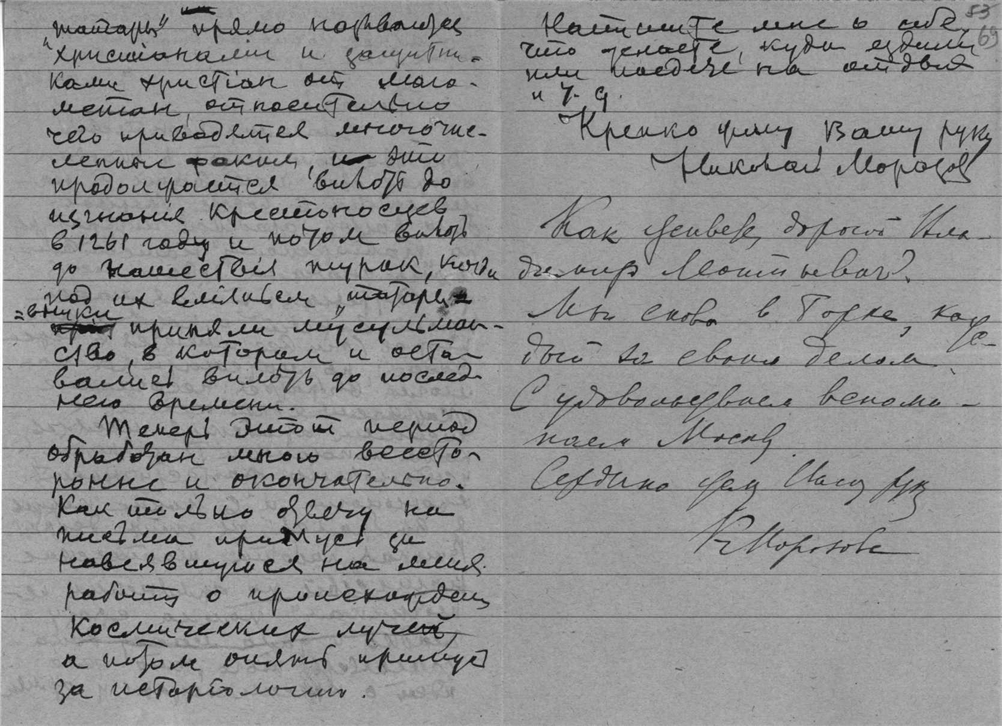 татары" прямо называются
"христіанами и защитни-
ками христіан от маго-
метан, относительно
чего приводятся многочис-
ленные факты, и это
продолжается вплоть до
изгнания крестоносцев
в 1261 году и потом вплоть
до нашествия турак, когда
под их влиянием татары
приняли мусульман-
ство, в котором и оста-
вались вплоть до послед-
него времени.
Теперь этот период
обработан мною всесто-
ронне и окончательно.
Как только отвечу на
письма примусь за
навалявшуюся на меня
работу о происхождении
космических лучей,
а потом опять примусь
за историологию.
53
69
Напишите мне о себе,
что делаете, куда ездили
или поедете на отдых
и т. д.
Крепко жму Вашу руку
Николай Морозов
Как живете, дорогой Вла-
димир Матвеевич?
Мы снова в Борке, каж-
дый за своим делом.
С удовольствием вспоми-
наем Москву
Сердечно жму Вашу руку
К Морозова